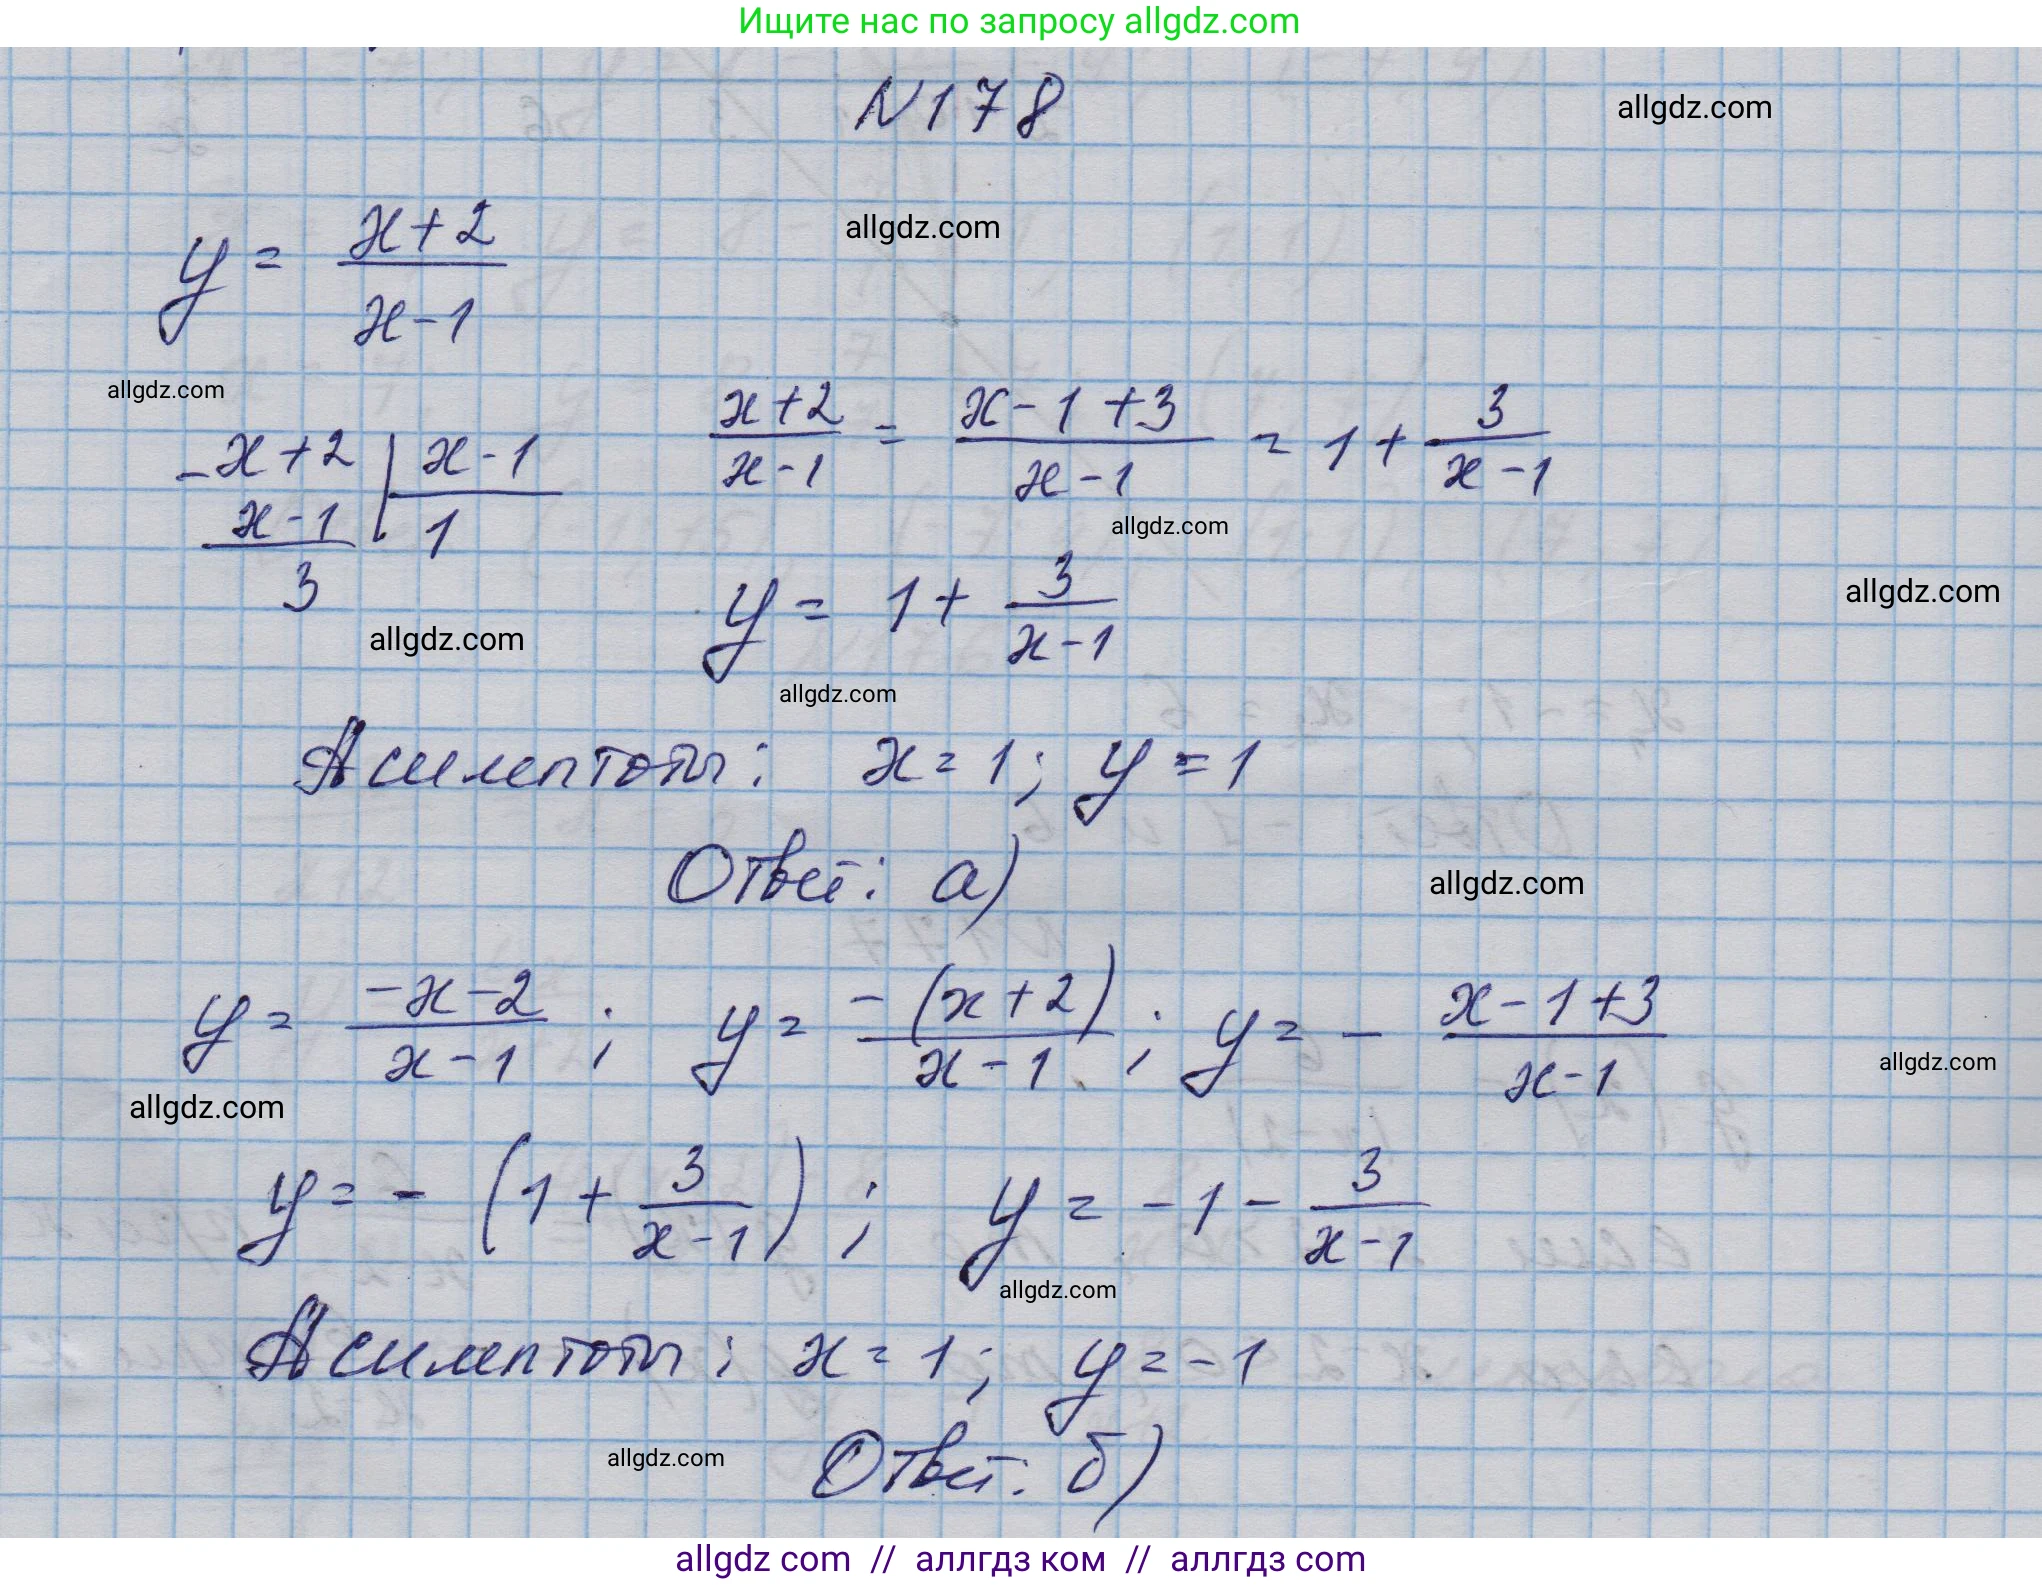 Ищите нас по запросу allgdz.com
N178
allgdz.com
y = (x+2)/(x-1)
allgdz.com
allgdz.com
-x+2 | x-1
x-1 | 1
3
(x+2)/(x-1) = (x-1+3)/(x-1) = 1 + 3/(x-1)
allgdz.com
y = 1 + 3/(x-1)
allgdz.com
allgdz.com
allgdz.com
Асимптоты: x=1; y=1
Ответ: а)
allgdz.com
y = (-x-2)/(x-1) ; y = (-(x+2))/(x-1) ; y = - (x-1+3)/(x-1)
allgdz.com
allgdz.com
y = - (1 + 3/(x-1)) ; y = -1 - 3/(x-1)
allgdz.com
Асимптоты: x=1; y=-1
allgdz.com
Ответ: б)
allgdz com // аллгдз ком // аллгdз com